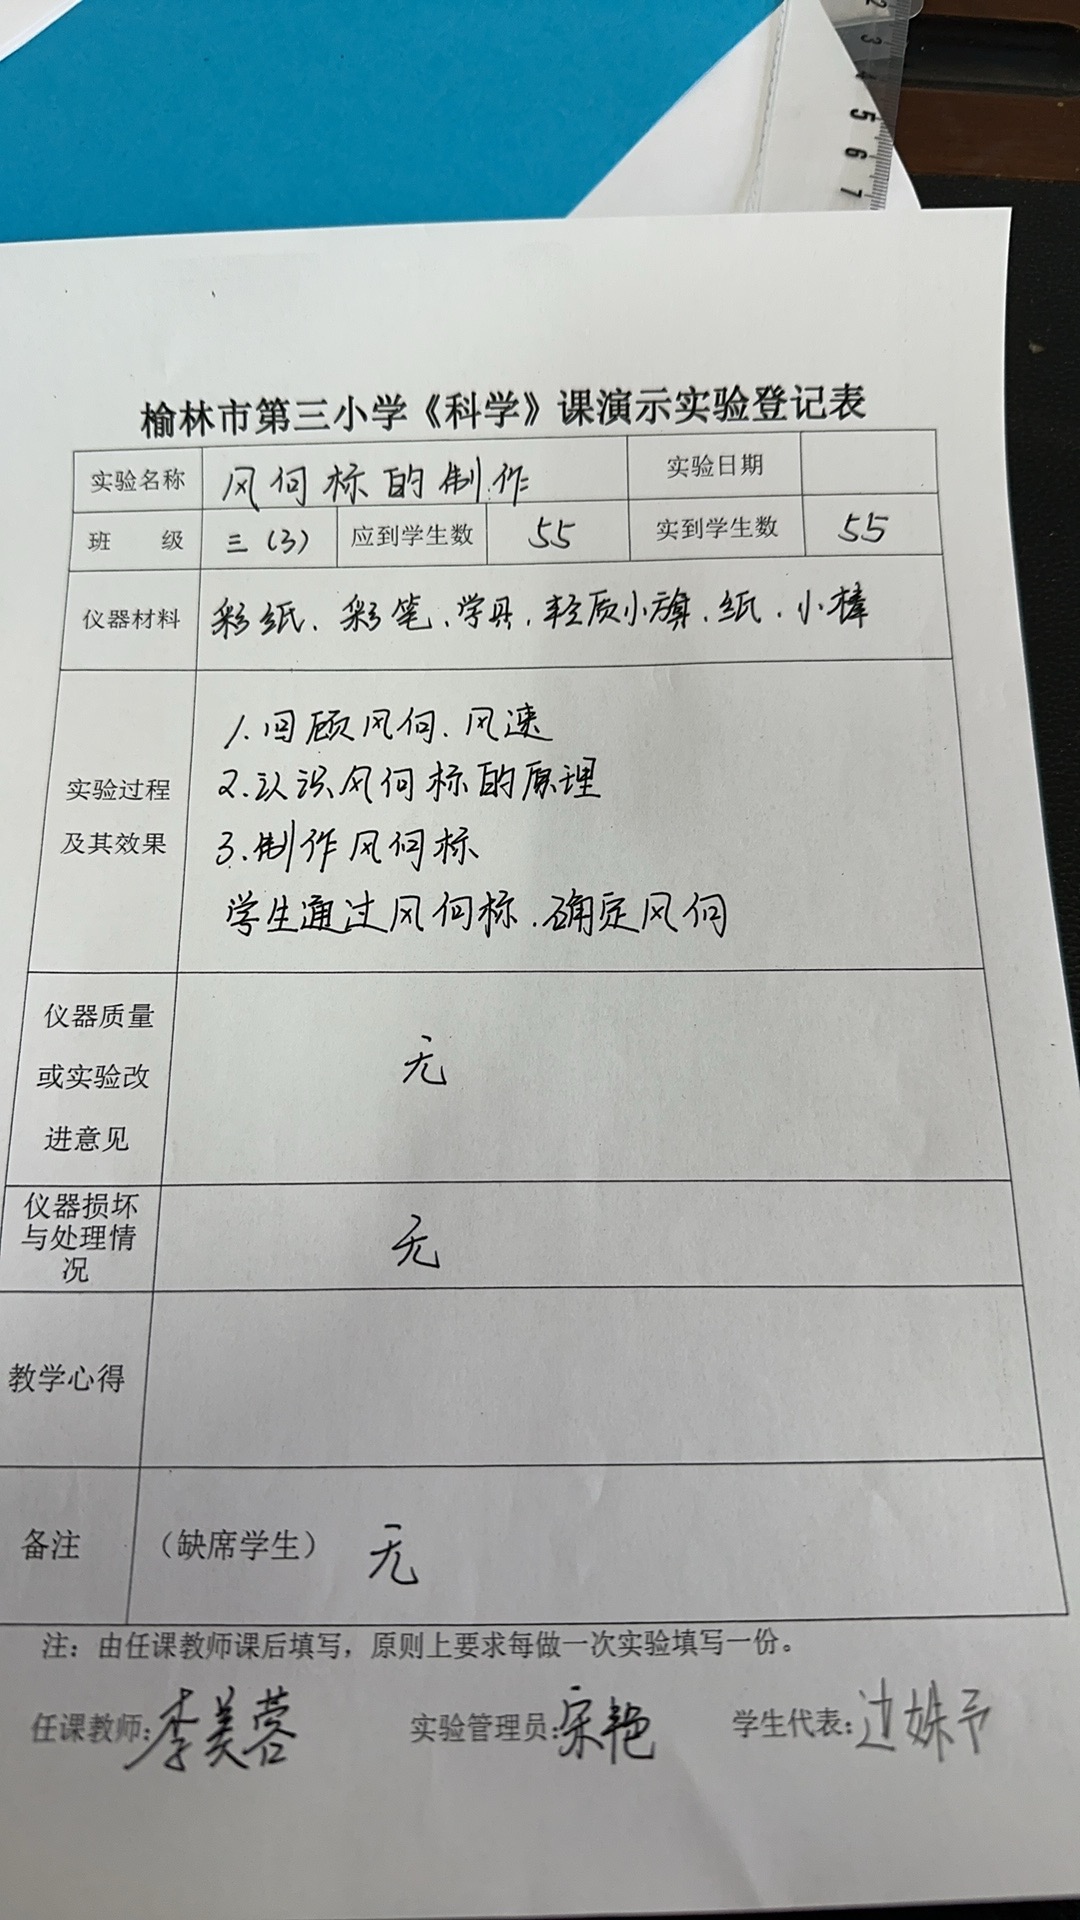 2
3
4
5
6
7
榆林市第三小学《科学》课演示实验登记表
实验名称 风向标的制作 实验日期
班 级 三(3) 应到学生数 55 实到学生数 55
仪器材料 彩纸、彩笔、学具、轻质小旗、纸、小棒
实验过程
及其效果
1.回顾风向、风速
2.认识风向标的原理
3.制作风向标
学生通过风向标、确定风向
仪器质量
或实验改
进意见
无
仪器损坏
与处理情
况
无
教学心得
备注 (缺席学生) 无
注：由任课教师课后填写，原则上要求每做一次实验填写一份。
任课教师:李美蓉 实验管理员:宋艳 学生代表:边姝予